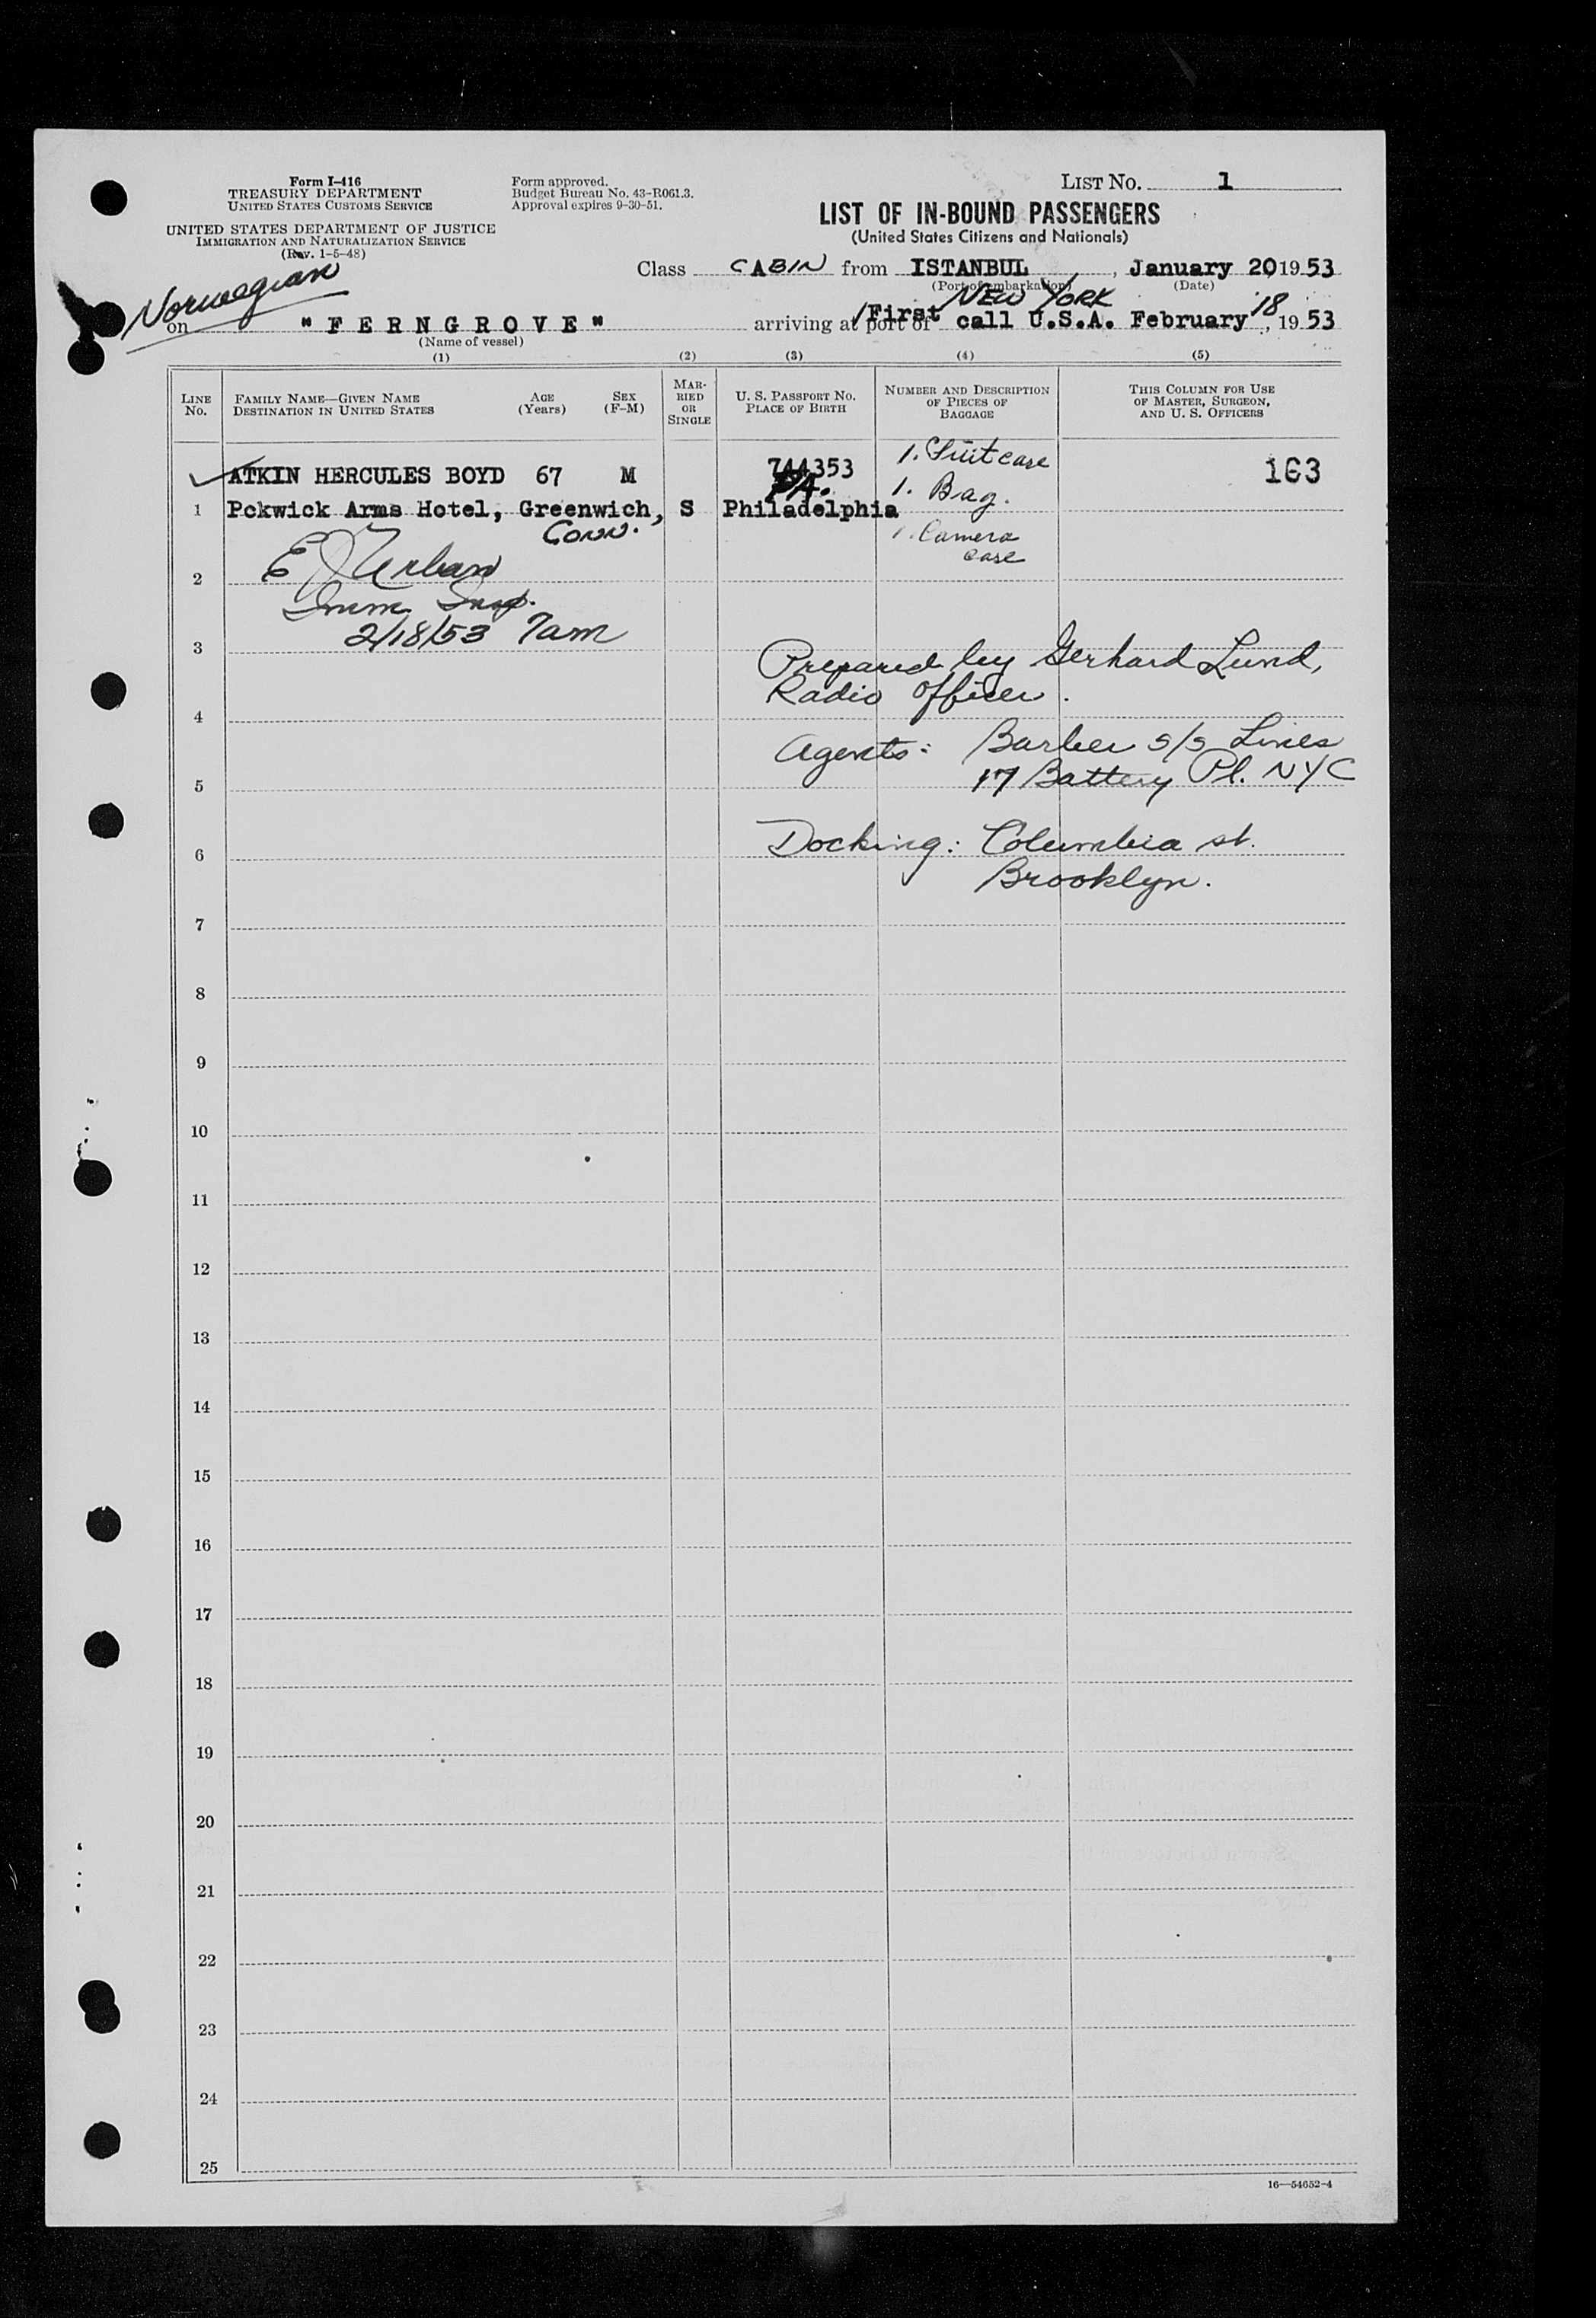 Form I-416
TREASURY DEPARTMENT
UNITED STATES CUSTOMS SERVICE
UNITED STATES DEPARTMENT OF JUSTICE
IMMIGRATION AND NATURALIZATION SERVICE
(Rev. 1-5-48)
Form approved.
Budget Bureau No. 43-R061.3.
Approval expires 9-30-51.
LIST NO. 1
LIST OF IN-BOUND PASSENGERS
(United States Citizens and Nationals)
Class CABIN from ISTANBUL, January 20 1953
(Port of embarkation) (Date)
Norwegian
NEW YORK
on "FERNGROVE" arriving at port of First call U.S.A. February 18, 1953
(Name of vessel)
(1) (2) (3) (4) (5)
LINE NO.
FAMILY NAME—GIVEN NAME
DESTINATION IN UNITED STATES
AGE (Years)
SEX (F-M)
MARRIED OR SINGLE
U. S. PASSPORT NO.
PLACE OF BIRTH
NUMBER AND DESCRIPTION
OF PIECES OF
BAGGAGE
THIS COLUMN FOR USE
OF MASTER, SURGEON,
AND U. S. OFFICERS
ATKIN HERCULES BOYD 67 M 744353 1. Suitcase 163
PA. 1. Bag.
1 Pckwick Arms Hotel, Greenwich, S Philadelphia
Conn. 1. Camera
case
E J Urban
2
Imm Insp.
2/18/53 7am
3
Prepared by Gerhard Lund,
Radio Officer.
4
Agents: Barber s/s Lines
17 Battery Pl. NYC
5
Docking: Columbia st.
6
Brooklyn.
7
8
9
10
11
12
13
14
15
16
17
18
19
20
21
22
23
24
25
16—54652-4